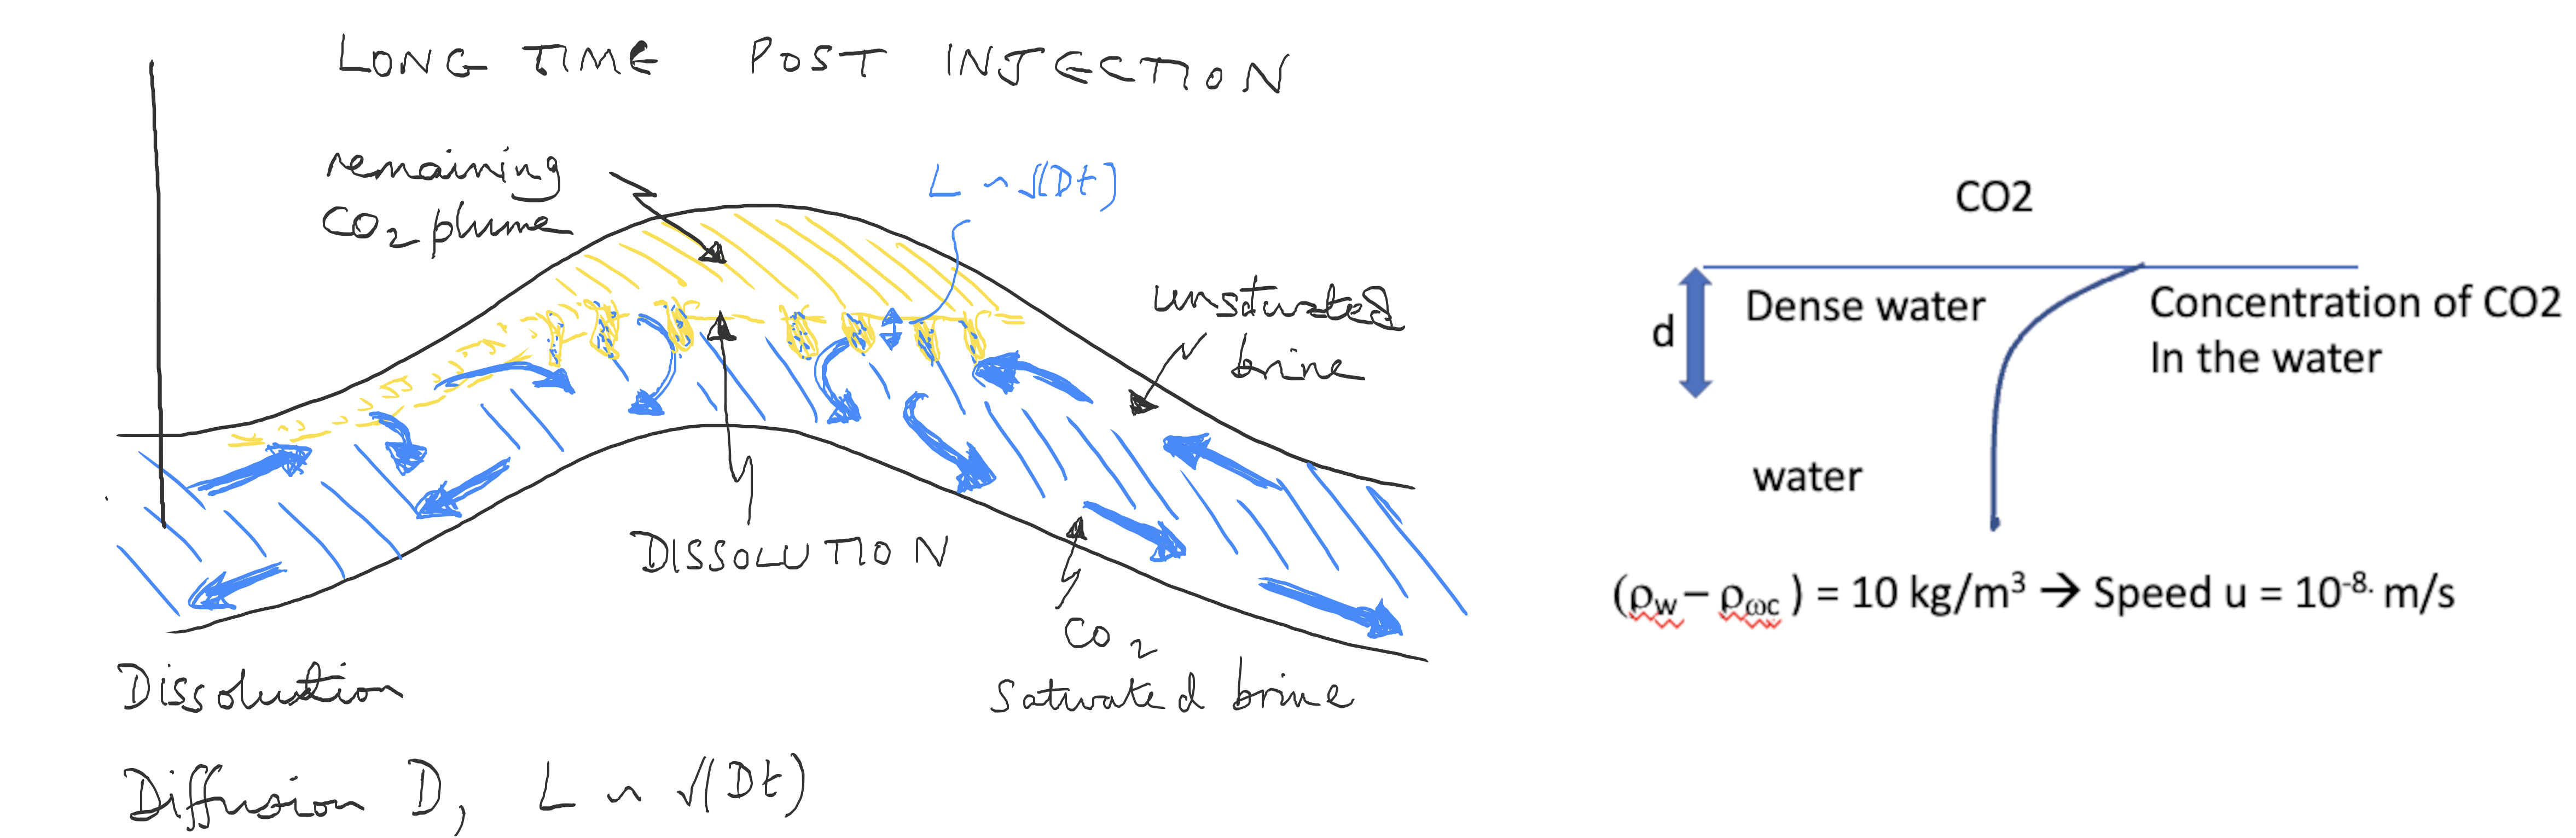 LONG TIME POST INJECTION
remaining
CO2 plume
L ~ √(Dt)
unsaturated
brine
DISSOLUTION
CO2
saturated brine
Dissolution
Diffusion D, L ~ √(Dt)
CO2
Dense water
Concentration of CO2
In the water
d
water
(ρw – ρωc ) = 10 kg/m³ → Speed u = 10⁻⁸· m/s